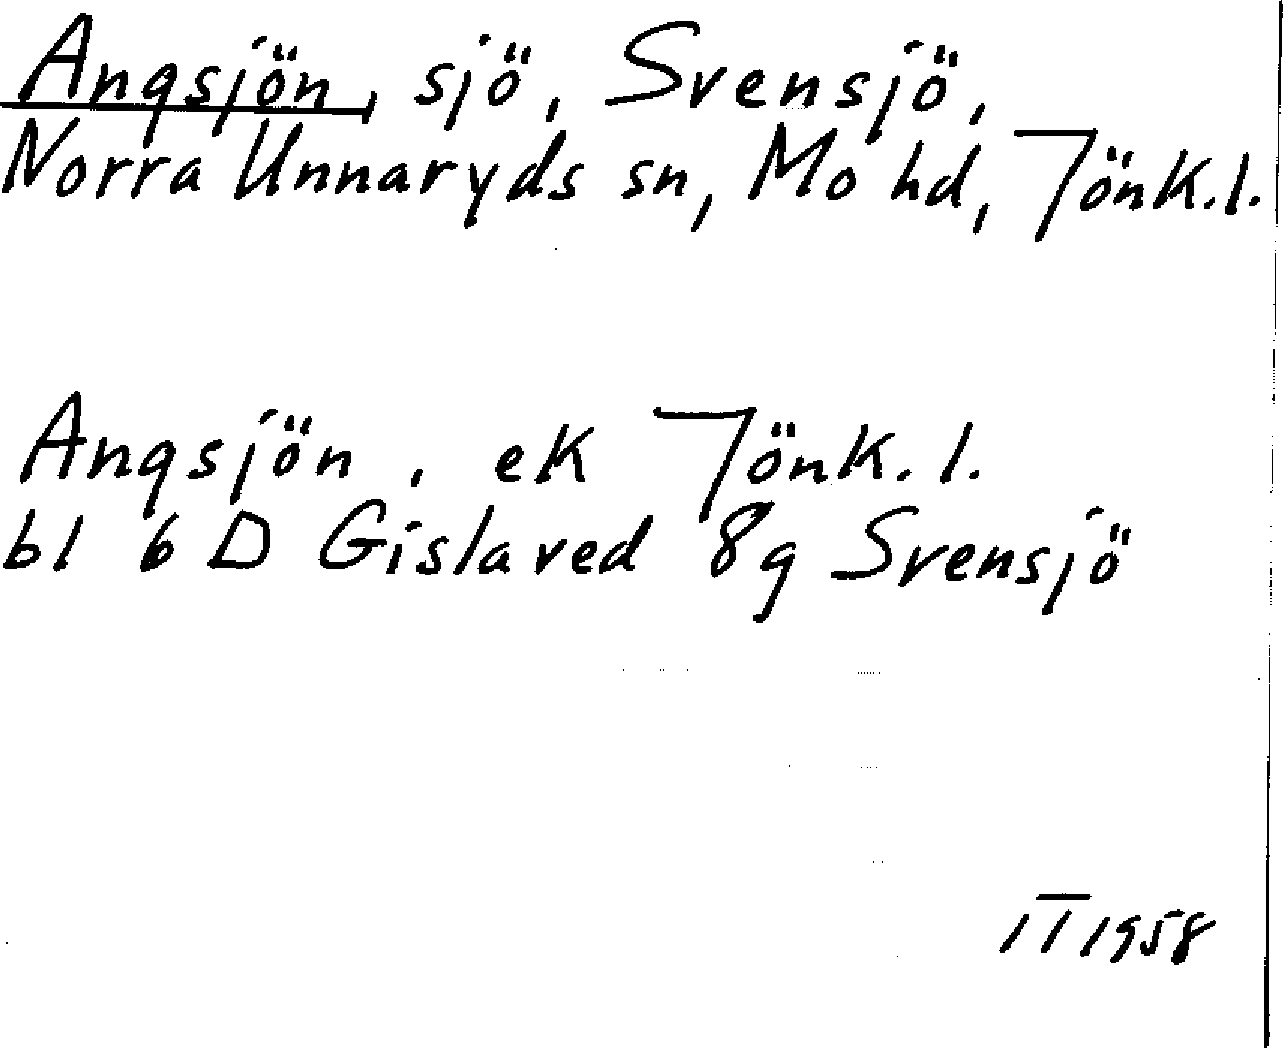 Angsjön, sjö, Svensjö,
Norra Unnaryds sn, Mo hd, Jönk.l.
Angsjön, ek Jönk.l.
bl 6 D Gislaved 8g Svensjö
1958